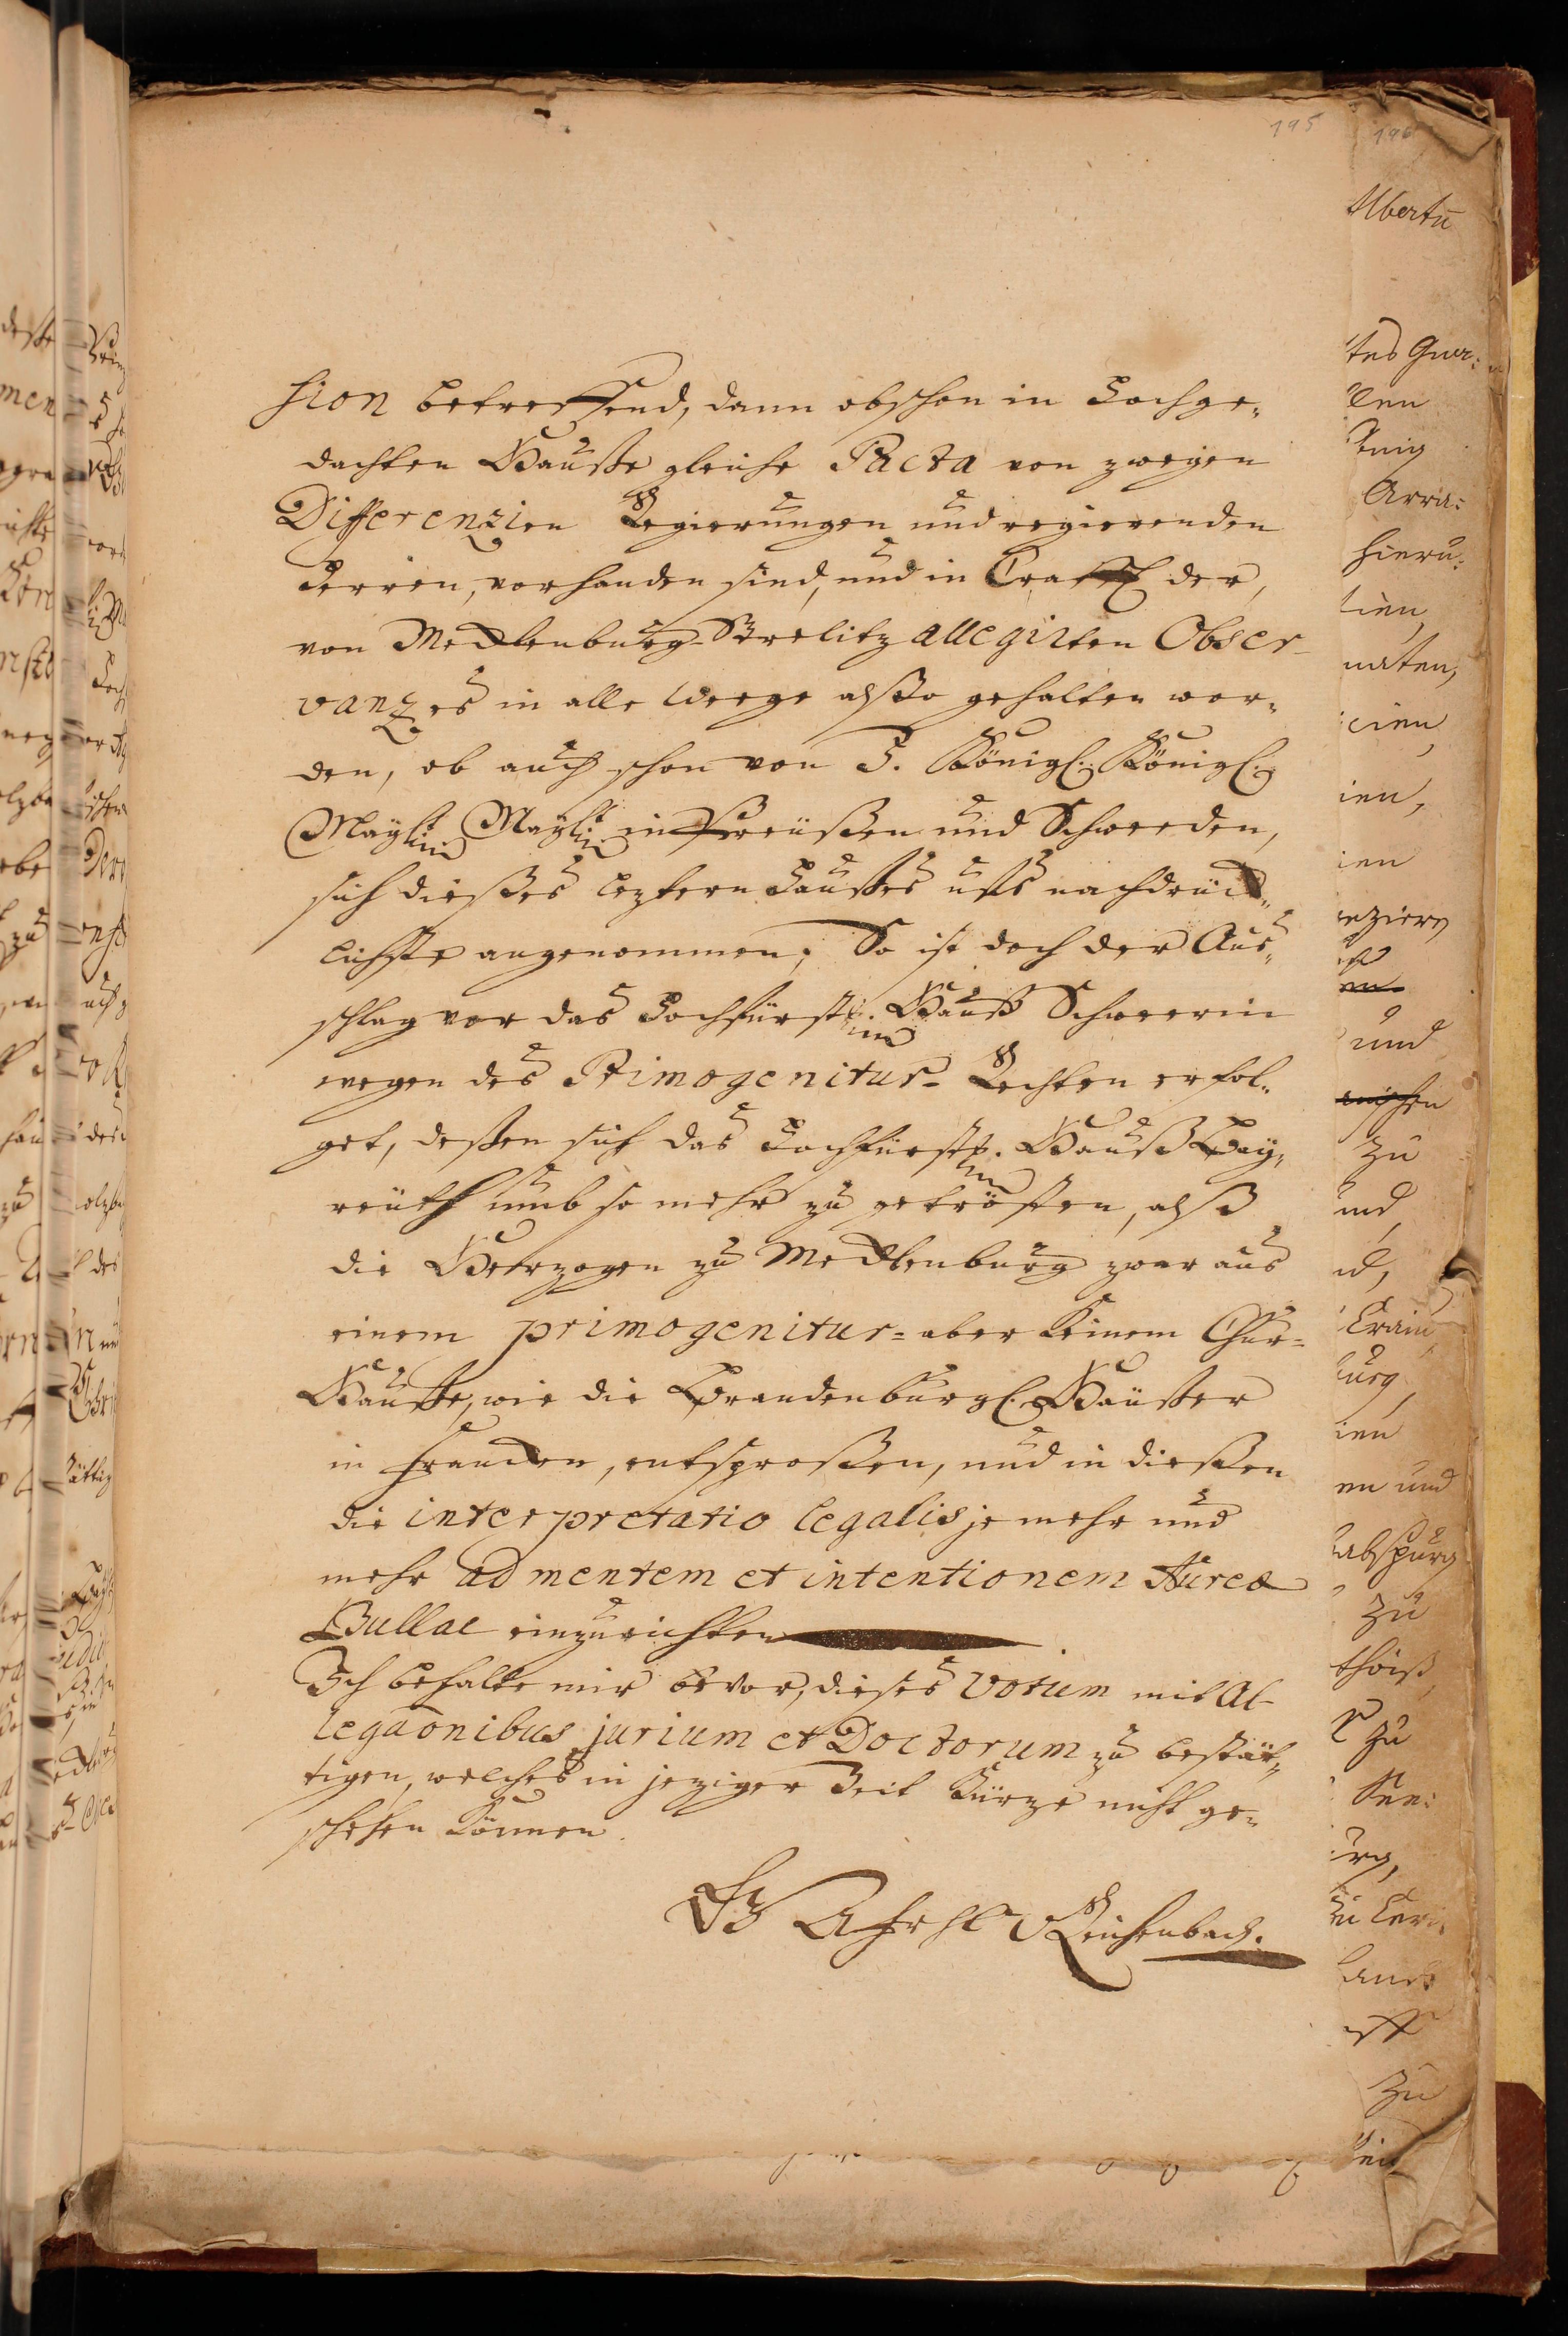 195
196
sion betreffend, dann obschon in Hochge„
dachten Hauße gleiche Pacta von zweyen
Differenzien Regierungen und regierenden
Herren, vorhanden sind, und in Crafft der,
von Mecklenburg-Strelitz allegirten Obser-
vanz es in alle Weege alßo gehalten wor„
den, ob auch schon von I. Königl: Königl:
Mayst: Mayst: in Preußen und Schweden,
sich dießes leztern Haußes ufs nachdrück„
lichste angenommen; So ist doch der Aus„
schlag vor das Hochfürstl. Hauß Schwerin
wegen des Primogenitur- Rechten erfol„
get, deßen sich das Hochfürstl. Hauß Bay„
reuth umb so mehr zu getrösten, alß
die Herzogen zu Mecklenburg zwar aus
einem primogenitur= aber keinem Chur=
Hauße, wie die Brandenburgl. Häußer
in Francken, entsproßen, und in dießen
die interpretatio legalis je mehr und
mehr ad mentem et intentionem Aureæ
Bullae einzurichten
Ich behalte mir bevor, dieses Votum mit Al-
legaõnibus jurium et Doctorum zu bestät„
tigen, welches in jeziger Zeit Kürze nicht ge„
schehen können.
Reichenbach.